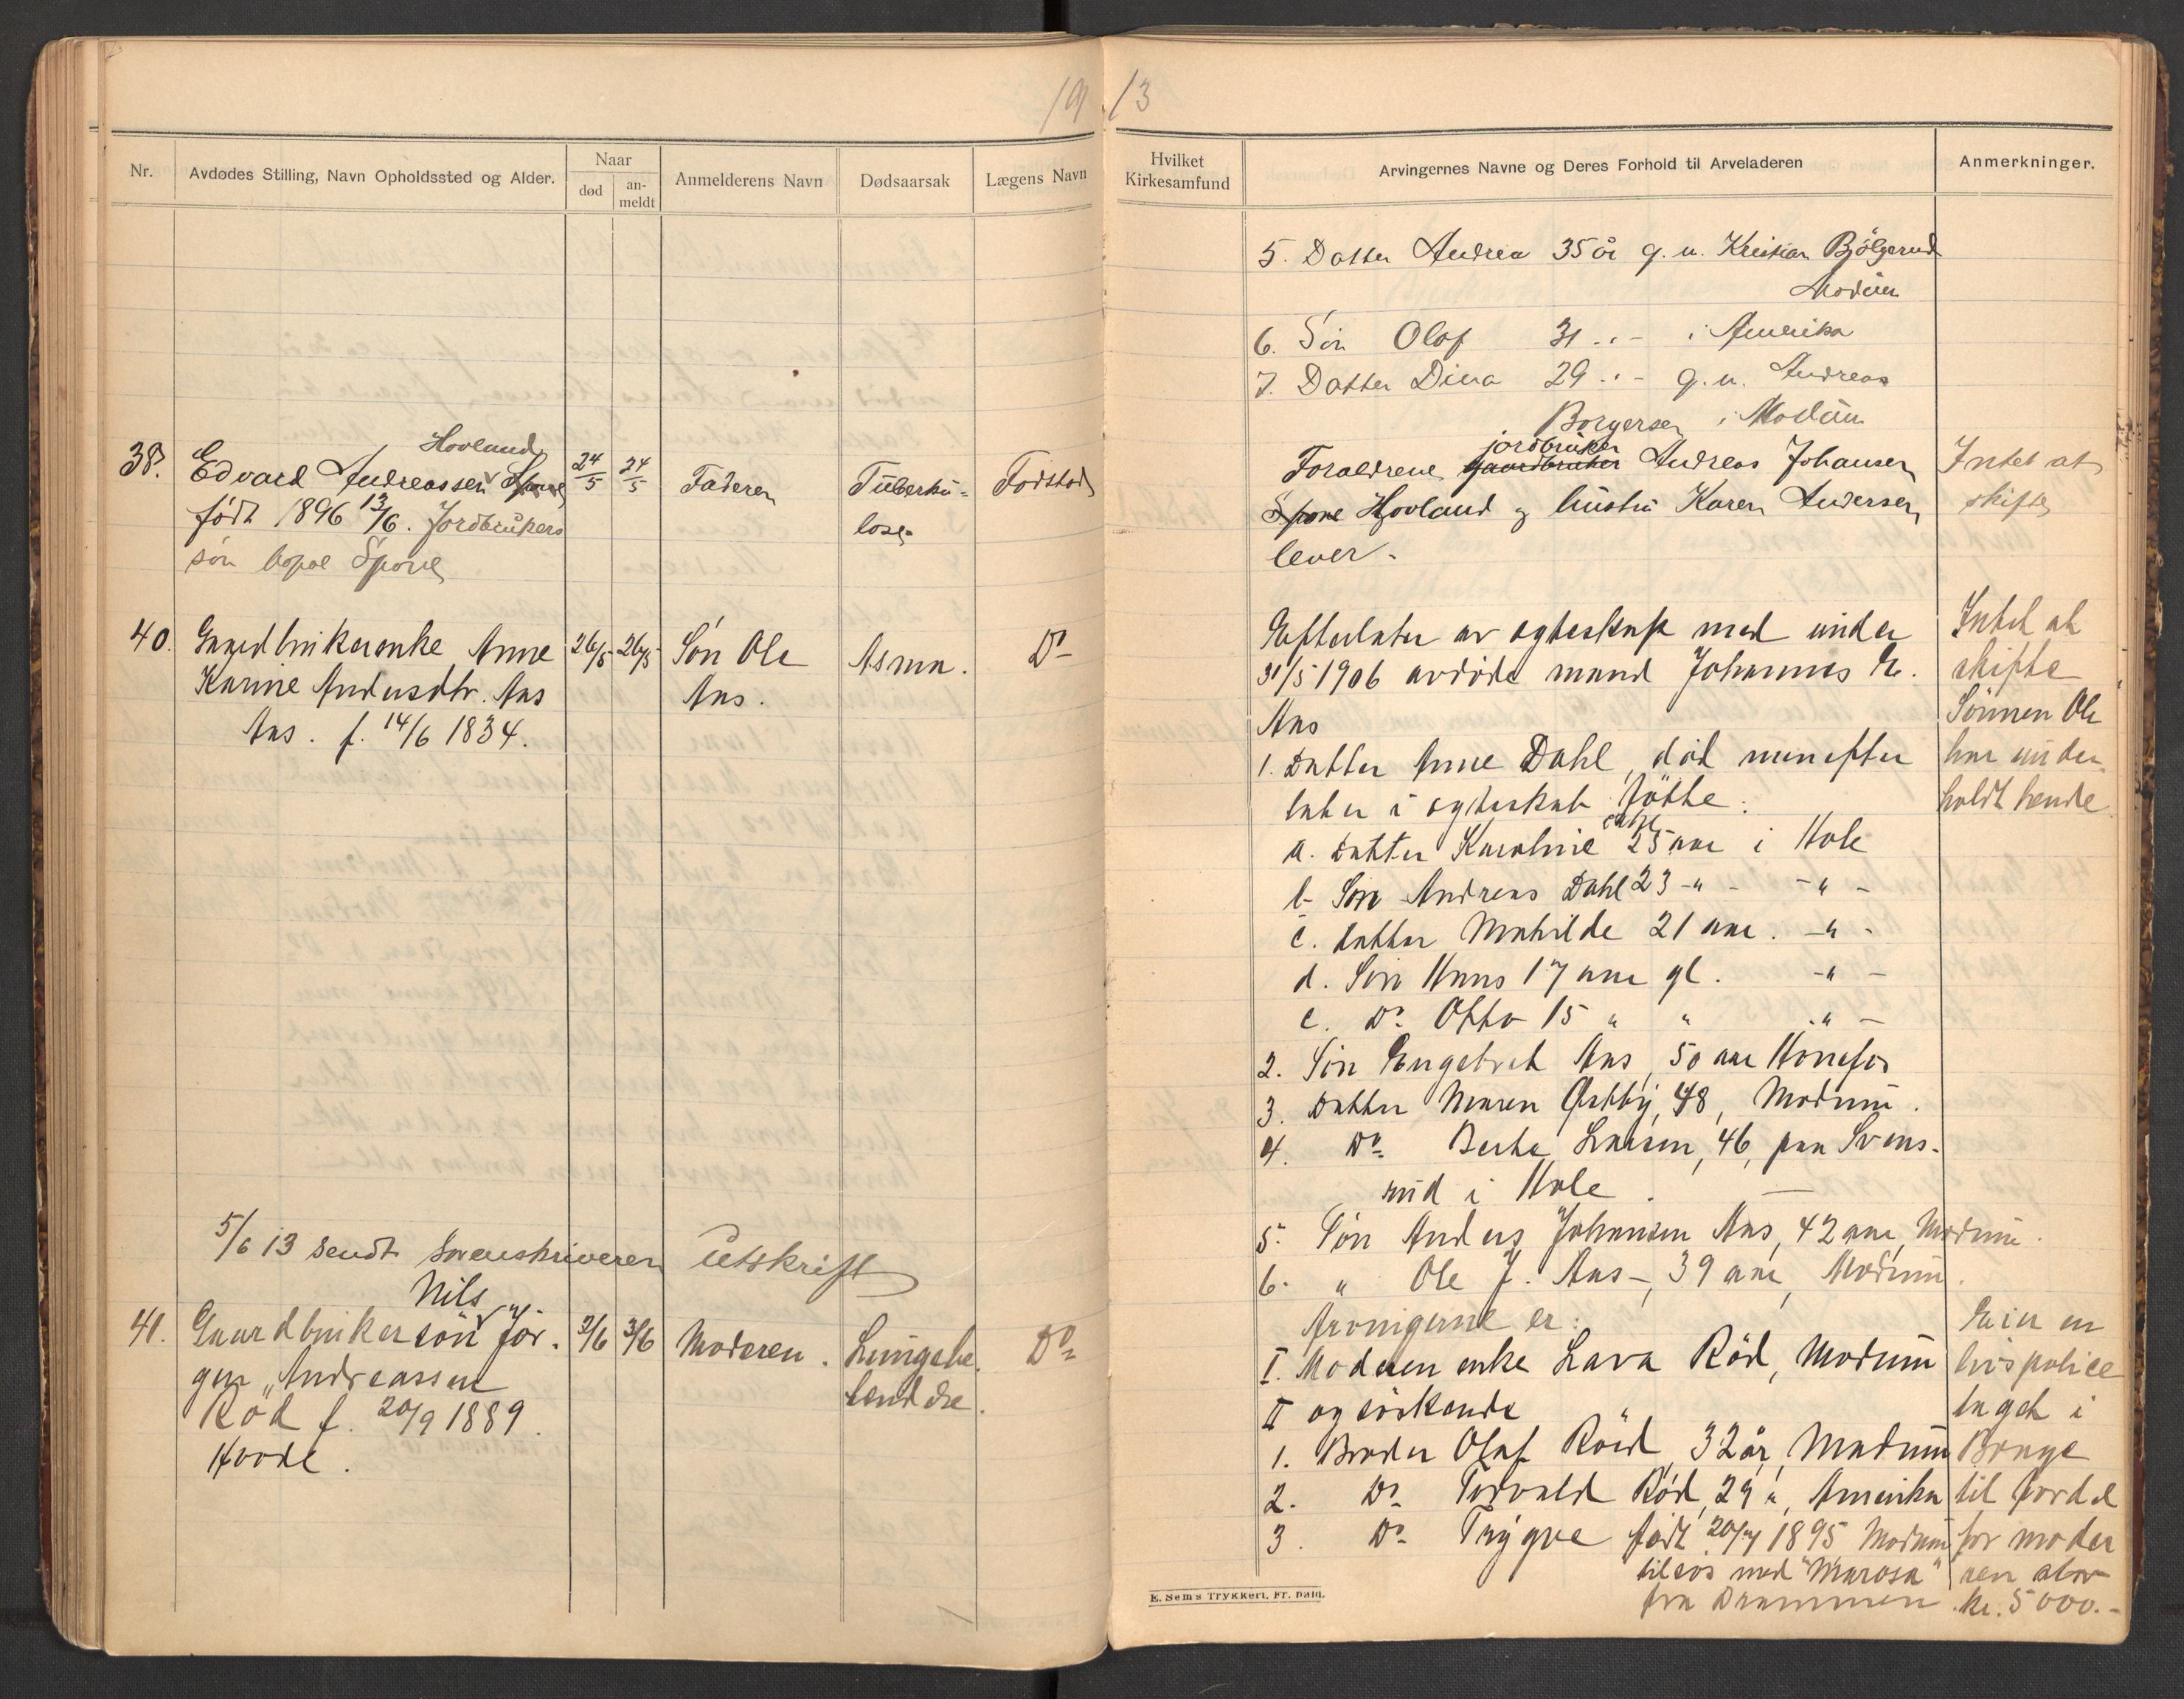 19 13
Nr.
Avdødes Stilling, Navn Opholdssted og Alder.
Naar
død
an-
meldt
Anmelderens Navn
Dødsaarsak
Lægens Navn
Hvilket
Kirkesamfund
Arvingernes Navne og Deres Forhold til Arveladeren
Anmerkninger.
5. Datter Andrea 35 år g. m. Kristian Bjölgerud
Modum
6. Sön Olaf 31 " - i Amerika
7. Datter Dina 29 " - g. m. Andreas
Borgersen i Modum
38.
Hovland
Edvard Andreassen Spone
født 1896 13/6. Jordbrukers
søn Spone
24/5
24/5
Faderen
Tüberkü-
lose
Fodstad
Foræeldrene jordbruker gaardbruker Andreas Johansen
Spone Hovland og hustru Karen Andersen
lever.
Intet at
skifte
40.
Gaardbrukerenke Anne
Karine Andersdtr. Aas
Aas. f. 14/6 1834.
26/5
26/5
Søn Ole
Aas.
Asma.
Do
Efterlater av egteskap med under
31/5 1906 avdöde mand Johannes E.
Aas
1. Datter Anne Dahl, död men efter
later i egteskab födte:
a. Datter Karoline Dahl 25 aar i Hole
b. Søn Andreas Dahl 23 -"- -"-
c. Datter Mathilde 21 aar. -"-
d. Søn Hans 17 aar gl. -"-
e. Do Otto 15 " " -"-
2. Søn Engebret Aas, 50 aar Hönefos
3. Datter Maren Østby, 48, Modum.
4. Do Berthe Larsen, 46, paa Svens-
rud i Hole.
5. Søn Anders Johansen Aas, 42 aar, Modum.
6. " Ole J. Aas, 39 aar, Modum.
Intet at
skifte
Sønnen Ole
har under
holdt hende
5/6 13 sendt Sorenskriveren Utskrift
41.
Nils
Gaardbrukersön Jör-
gen Andreassen
Röd f. 20/9 1889.
Hovde.
3/6
3/6
Moderen.
Lungebe-
tendelse.
Do
Arvingerne er:
I. Moderen enke Lava Röd, Modum
II og söskende
1. Broder Olaf Röd, 32 år, Modum
2. Do Torvald Röd, 29 ", Amerika
3. Do Trygve født 20/4 1895 Modum
tilsös med "Marosa"
fra Drammen
Eier en
livspolice
taget i
Brage
til fordel
for moder
ren stor
kr. 5000.-
E. Sem's Trykkeri, Fr. hald.